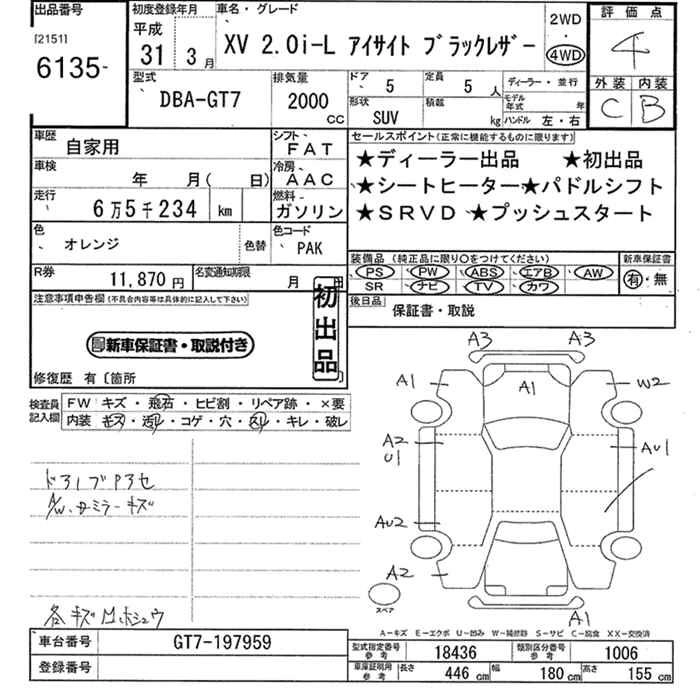 出品番号 初度登録年月 車名・グレード 2WD 評価点
[2151] 平成 XV 2.0i-L アイサイト ブラックレザー ・ 4
6135- 31年 3月 4WD
型式 排気量 ドア 5 定員 5人 ディーラー・並行 外装 内装
DBA-GT7 2000cc 形状 SUV 積載 kg モデル年式 年 C B
ハンドル 左・右
車歴 自家用 シフト FAT セールスポイント(正常に機能するものに限ります)
車検 年 月( 日) 冷房 AAC ★ディーラー出品 ★初出品
走行 6万5千234 km 燃料 ガソリン ★シートヒーター★パドルシフト
★SRVD ★プッシュスタート
色 オレンジ 色替 色コード PAK
装備品(純正品に限り〇をつけてください) 新車保証書
PS PW ABS エアB AW 有・無
SR ナビ TV カワ
R券 11,870円 名変通知期限 月 日
後日品 保証書・取説
注意事項申告欄(不具合内容等は具体的に記入して下さい) 初出品
新車保証書・取説付き
修復歴 有〔箇所
検査員記入欄 FW キズ・飛石・ヒビ割・リペア跡・×要
内装 キズ・汚レ・コゲ・穴・スレ・キレ・破レ
A3 A3
A1 A1 W2
A2 U1 AU1
AU2
A2
A1
スペア
A-キズ E-エクボ U-凹み W-補修跡 S-サビ C-腐食 XX-交換済
車台番号 GT7-197959
登録番号
型式指定番号 参考 18436 類別区分番号 参考 1006
車庫証明用 参考 長さ 446cm 幅 180cm 高さ 155cm